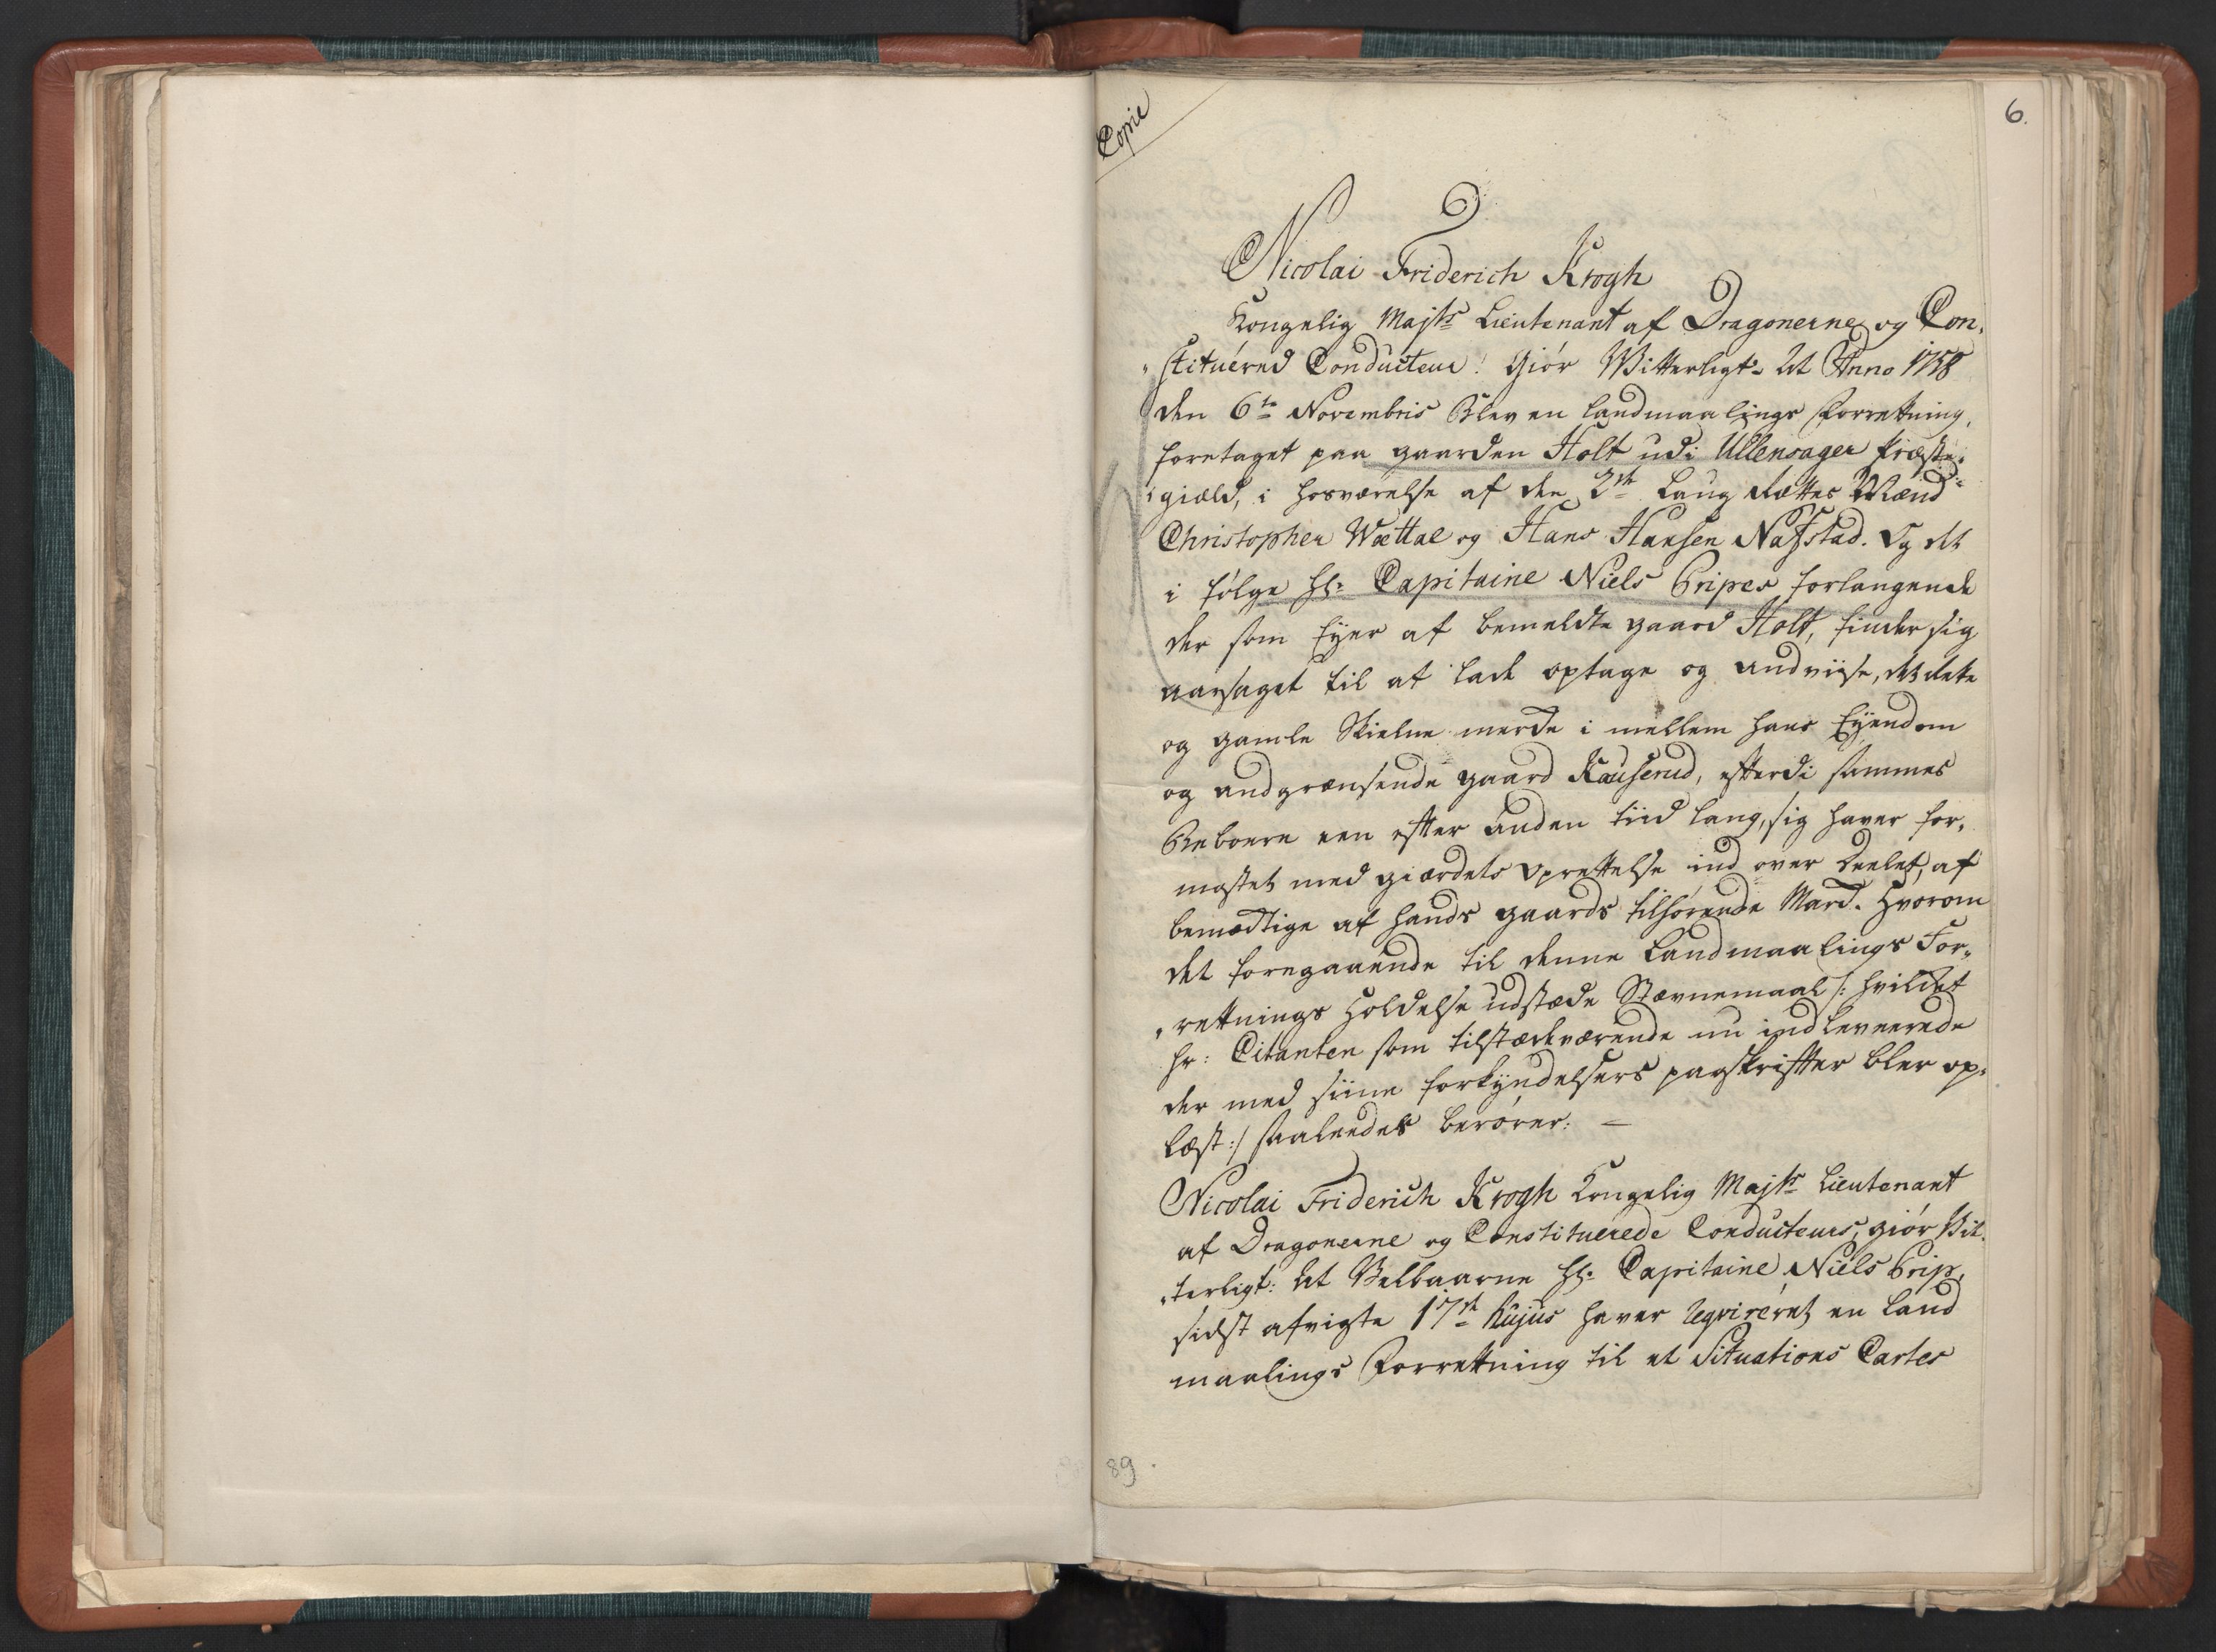 Copie
6.
Nicolai Friderich Krogh
Kongelig Majts Lieutenant af Dragonerne og Con,
„stituered Conducteur! Giör Witterligt: At Anno 1758
den 6te Novembris Blev en Landmaalings Forretning,
foretaget paa gaarden Holt udi Ullensager Præste,
„giæld, i hosværelse af de 2de Laug Rettes Mænd
Christopher Wættal og Hans Hansen Nafstad. Og det
i fölge Hr: Capitaine Niels Gripes forlangende
der som Eyer af bemeldte gaard Holt, finder sig
aarsaget til at lade optage og andviise, det rette
og gamle Skielne merke i mellem hans Eyendom
og andgrænsende gaard Kauserud, efterdi sammes
Beboere een efter anden tiid lang, sig haver for,
mastet med giærdets Oprettelse ind over Deelet, at
bemægtige af hands gaards tilhörende Mark. Hvorom
det foregaaende til denne Landmaalings For„
„rettnings Holdelse udstæde Stævnemaal /: hvilket
Hr: Citanten som tilstædeværende nu indleverede
der med siine forkyndelsers paaskrifter blev op,
læst :/ saaleedes berörer: —
Nicolai Friderich Krogh Kongelig Majts Lieutenant
af Dragonerne og Constituerede Conducteur, giör Vit,
„terligt: At Velbaarne Hr: Capitaine Niels Grip,
sidst afvigte 17de hujus haver reqvireret en Land
maalings Forretning til et Situations Cartes
89